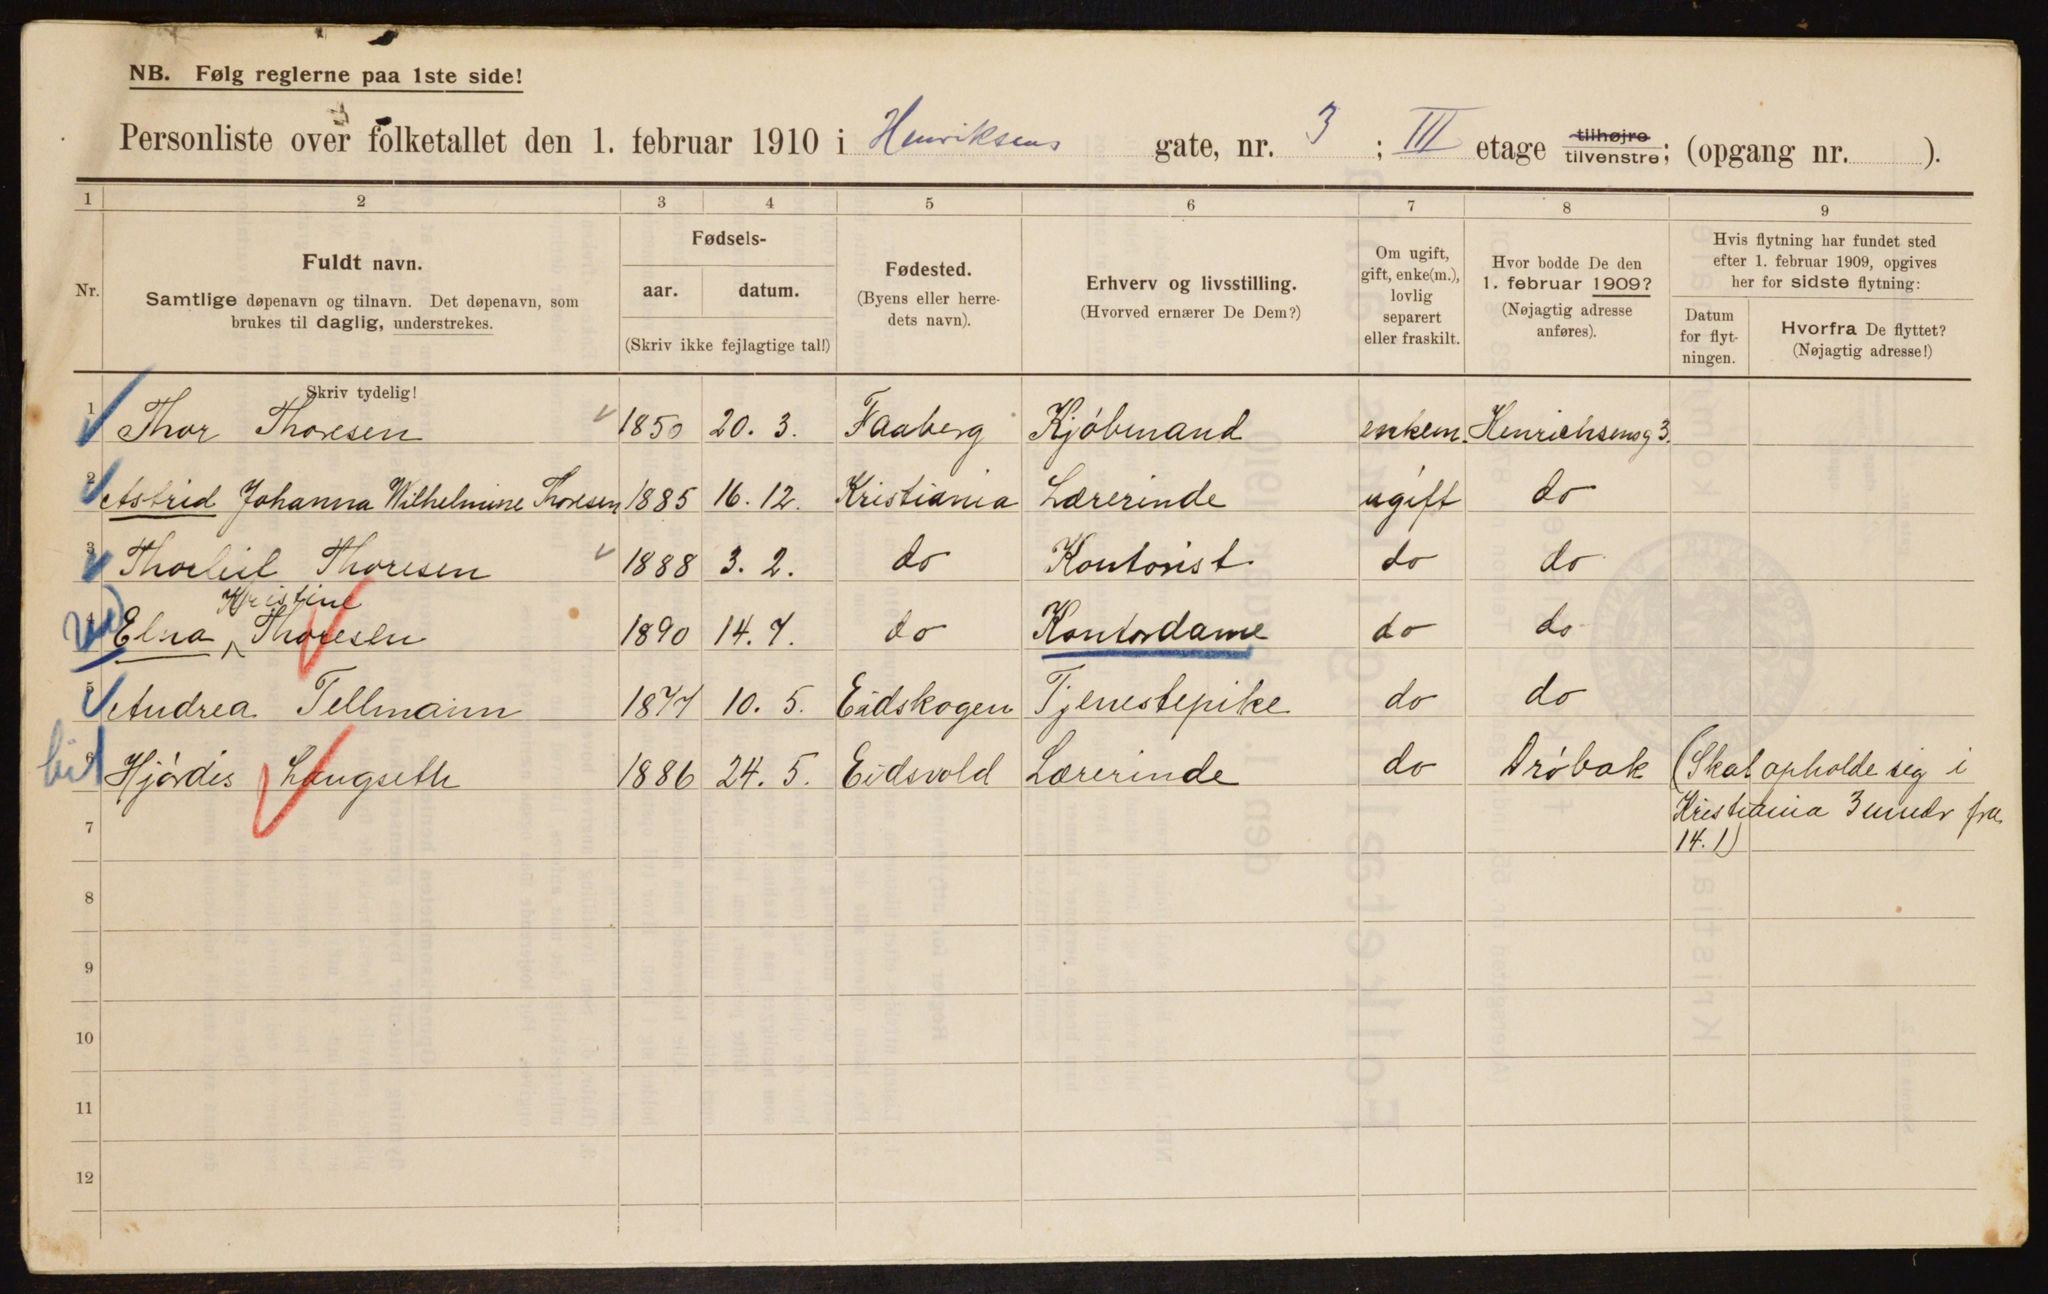 NB. Følg reglerne paa 1ste side!
Personliste over folketallet den 1. februar 1910 i Henriksens gate, nr. 3; III etage tilhøjre tilvenstre; (opgang nr. ).
1 2 3 4 5 6 7 8 9
Nr.
Fuldt navn.
Samtlige døpenavn og tilnavn. Det døpenavn, som
brukes til daglig, understrekes.
Fødsels-
aar. datum.
(Skriv ikke fejlagtige tal!)
Fødested.
(Byens eller herre-
dets navn).
Erhverv og livsstilling.
(Hvorved ernærer De Dem?)
Om ugift,
gift, enke(m.),
lovlig
separert
eller fraskilt.
Hvor bodde De den
1. februar 1909?
(Nøjagtig adresse
anføres).
Hvis flytning har fundet sted
efter 1. februar 1909, opgives
her for sidste flytning:
Datum
for flyt-
ningen.
Hvorfra De flyttet?
(Nøjagtig adresse!)
Skriv tydelig!
1 Thor Thoresen 1850 20. 3. Faaberg Kjøbmand enkem. Henrichsensg 3.
2 Astrid Johanna Wilhelmine Thoresen 1885 16. 12. Kristiania Lærerinde ugift do
3 Thorleif Thoresen 1888 3. 2. do Kontorist do do
Kristine
4 Elna Thoresen 1890 14. 7. do Kontordame do do
5 Andrea Tellmann 1877 10. 5. Eidskogen Tjenestepike do do
6 Hjørdis Langseth 1886 24. 5. Eidsvold Lærerinde do Drøbak (Skal opholde sig i
7 Kristiania 3 mndr fra
14. 1)
8
9
10
11
12